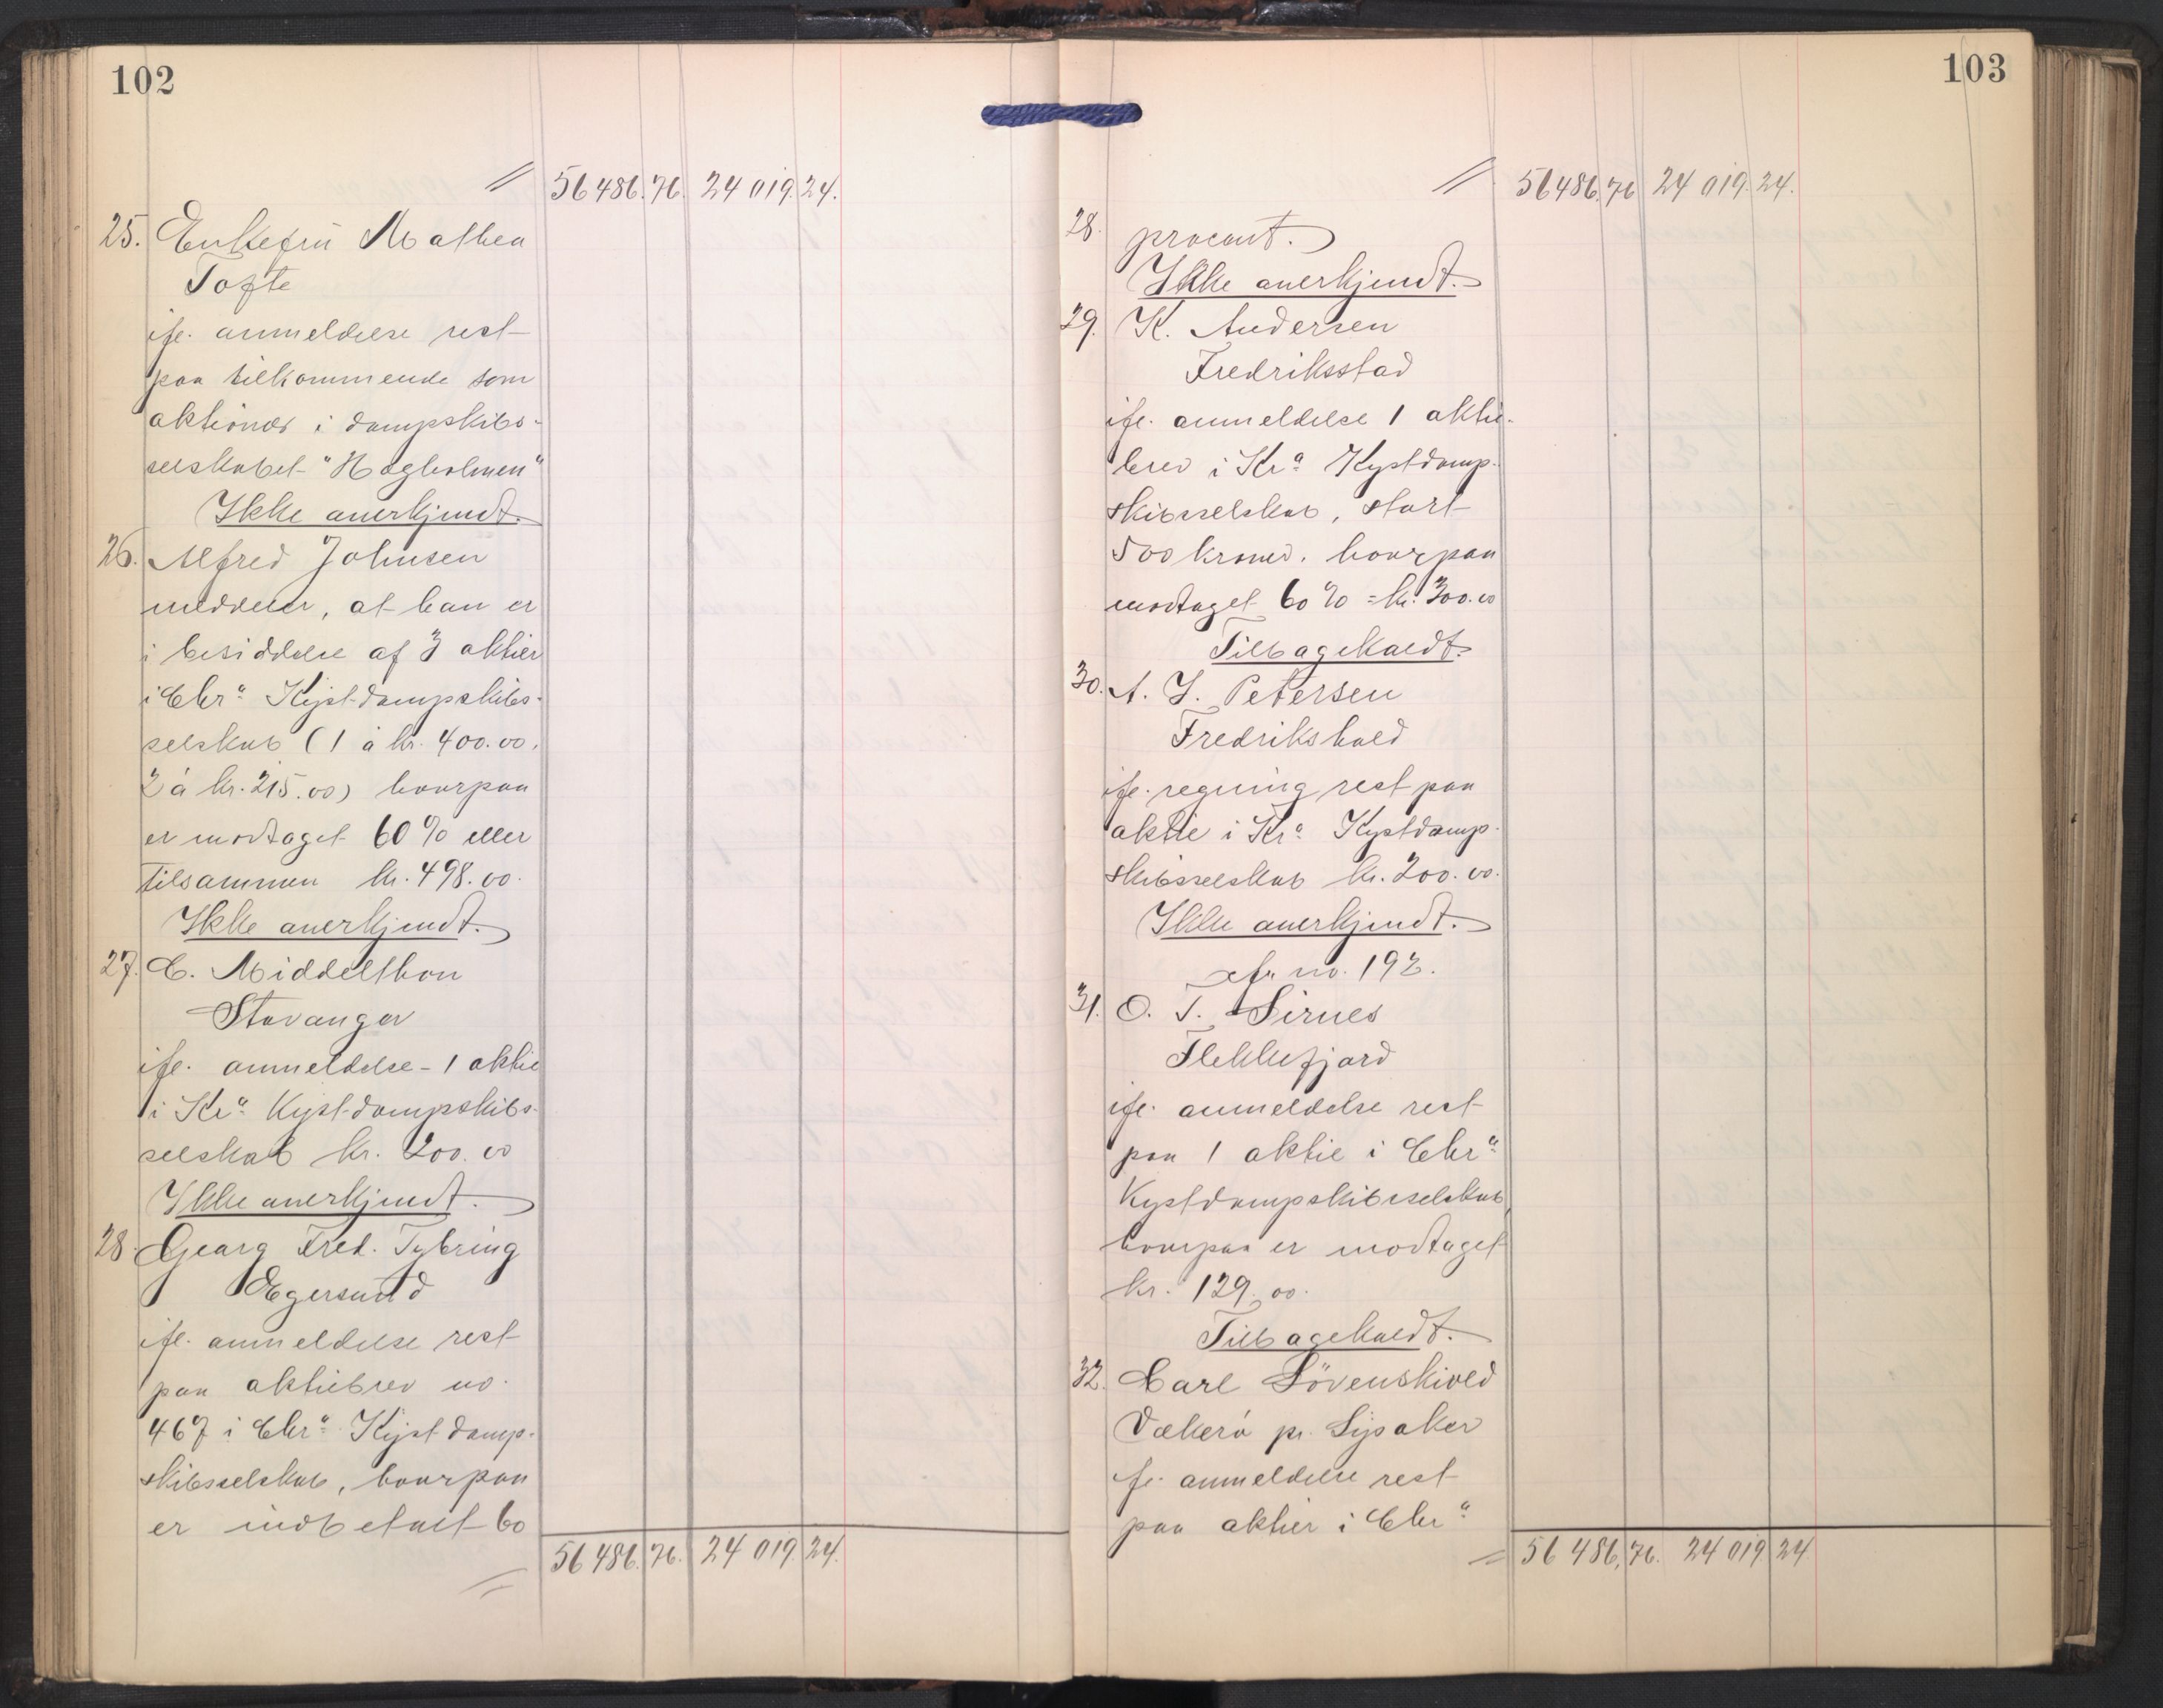 102
// 56 486. 76. 24 019. 24.
25. Enkefru Mathea
Tofte
ifl. anmeldelse rest
paa tilkommende som
aktionær i dampskibs-
selskabet "Hægholmen"
Ikke anerkjendt.
26. Alfred Johnsen
meddeler, at han er
i besiddelse af 3 aktier
i Chra Kystdampskibs-
selskab (1 à kr. 400.00.
2 à kr. 215.00) hvorpaa
er modtaget 60 % eller
tilsammen kr. 498.00.
Ikke anerkjendt.
27. C. Middelthon
Stavanger
ifl. anmeldelse - 1 aktie
i Kra Kystdampskibs-
selskab kr. 200.00
Ikke anerkjendt.
28. Georg Fred. Tybring
Egersund
ifl. anmeldelse rest
paa aktiebrev no.
467 i Chra Kystdamp-
skibsselskab, hvorpaa
er indbetalt 60
56 486. 76. 24 019. 24.
103
// 56 486. 76 24 019. 24.
28. procent.
Ikke anerkjendt.
29. K. Andersen
Fredriksstad
ifl. anmeldelse 1 aktie-
brev i Kra Kystdamp-
skibsselskab, stort
500 kroner. hvorpaa
modtaget 60 % = kr. 300.00
Tilbagekaldt.
30. A. J. Petersen
Fredrikshald
ifl. regning rest paa
aktie i Kra Kystdamp-
skibsselskab kr. 200.00.
Ikke anerkjendt.
cfr no. 192.
31. O. T. Sirnes
Flekkefjord
ifl. anmeldelse rest
paa 1 aktie i Chra
Kystdampskibsselskab,
hvorpaa er modtaget
kr. 129.00.
Tilbagekaldt.
32. Carl Lövenskiold
Vækerö pr. Lysaker
ifl. anmeldelse rest
paa aktier i Chra
56 486. 76. 24 019 24